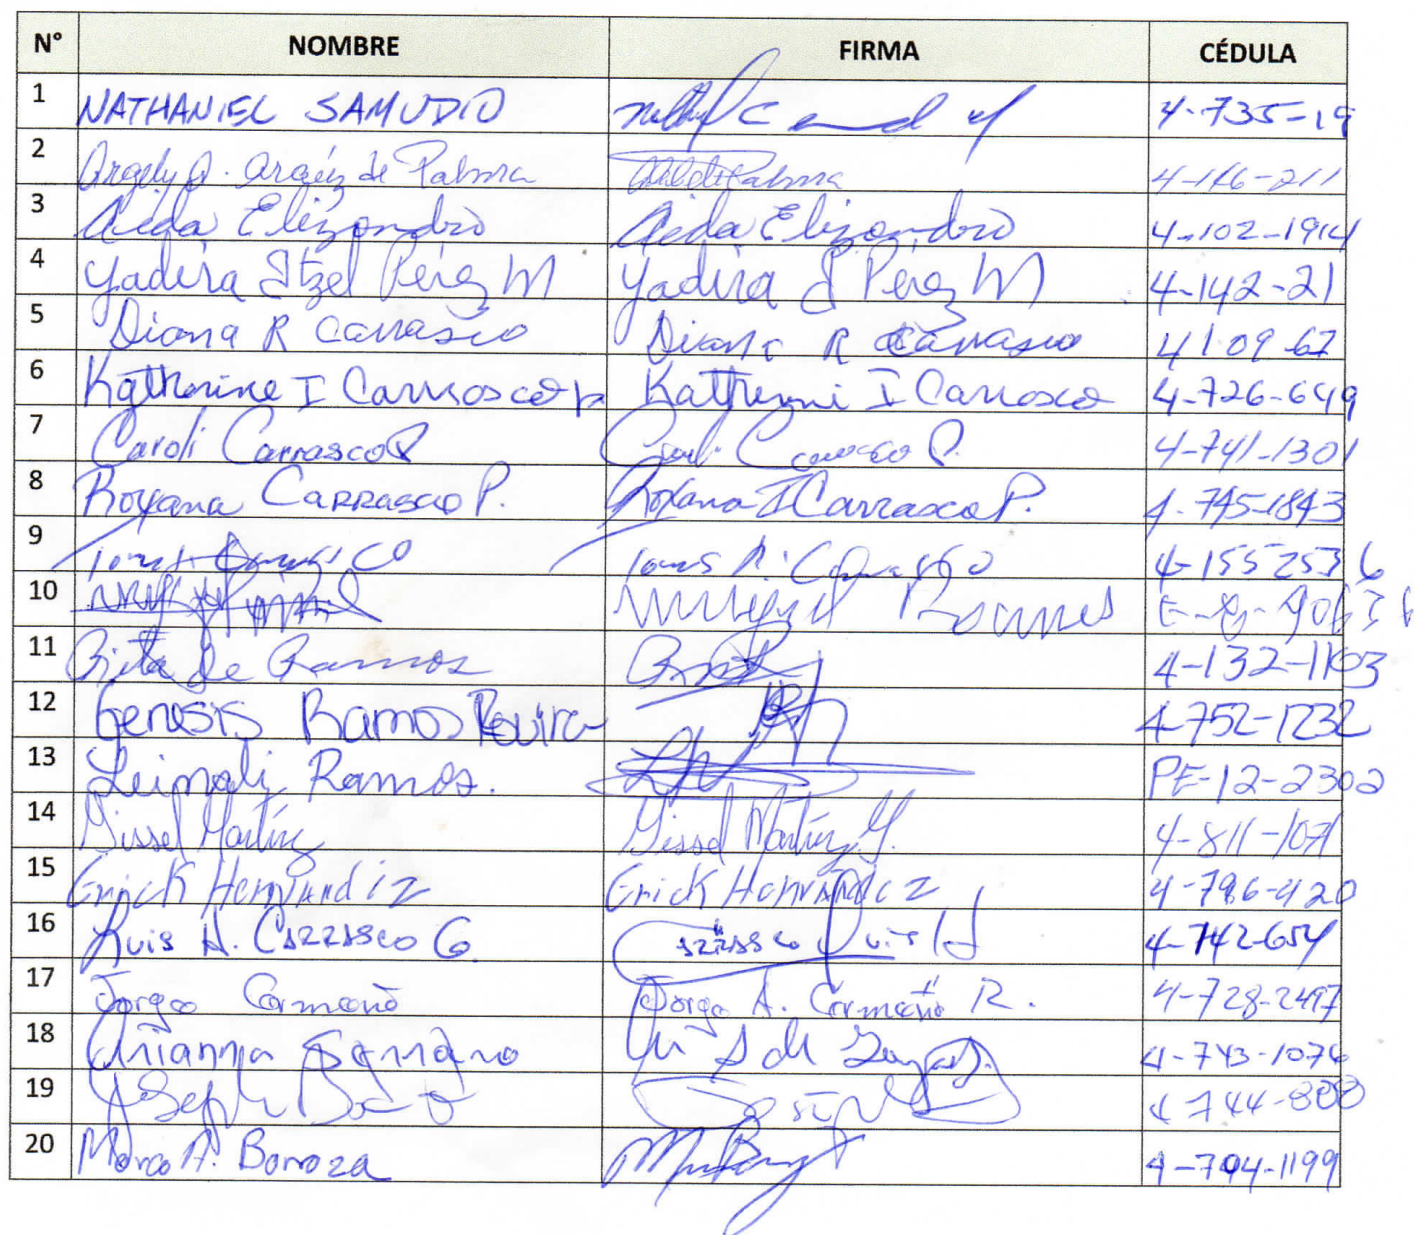 N° NOMBRE FIRMA CÉDULA
1 NATHANIEL SAMUDIO 4-735-19
2 Argely A. Araúz de Palma de Palma 4-146-211
3 Aida Elizondro Aida Elizondro 4-102-1914
4 Yadira Itzel Pérez M Yadira I Pérez M 4-142-21
5 Diana R Carrasco Diana R Carrasco 4109-67
6 Katherine I Carrasco Katherine I Carrasco 4-726-649
7 Caroli Carrasco P Caroli Carrasco P. 4-741-1301
8 Roxana CARRASCO P. Roxana I Carrasco P. 4-745-1843
9 Tomas R. Carrasco 4-155 2536
10 Ramos
11 Rita de Ramos 4-132-1103
12 Genesis Ramos Rovira 4-752-1232
13 Leinali Ramos. PE-12-2302
14 Gissel Martínez Gissel Martínez G. 4-811-1071
15 Erick Hernández Erick Hernández 4-796-420
16 Luis A. CARRASCO G. Carrasco Luis A 4-742-654
17 Jorge Carmeño Jorge A. Carmeño R. 4-728-2497
18 Arianna Serrano 4-743-1076
19 Joseph Joseph 4-744-808
20 Marco A. Barroza 4-704-1199